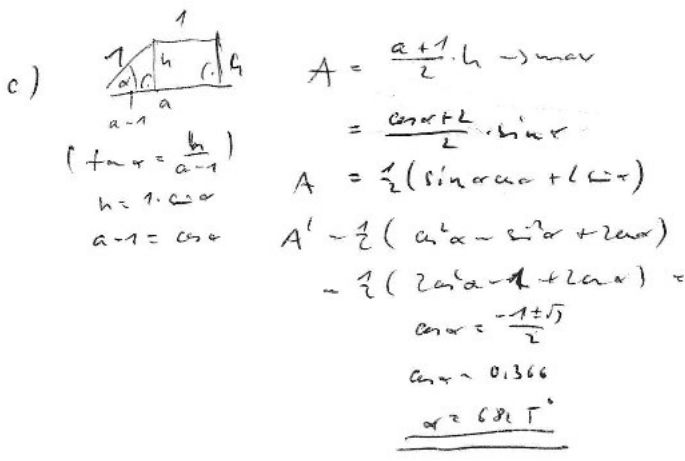 c)
1
1 h h
α
a
a-1
(tan α = h/(a-1))
h = 1·sin α
a-1 = cos α
A = (a+1)/2 · h → max
= (cos α+2)/2 · sin α
A = 1/2 (sin α cos α + 2 sin α)
A' = 1/2 ( cos²α - sin²α + 2cos α)
= 1/2 ( 2cos²α - 1 + 2cos α) =
cos α = (-1±√3)/2
cos α = 0,366